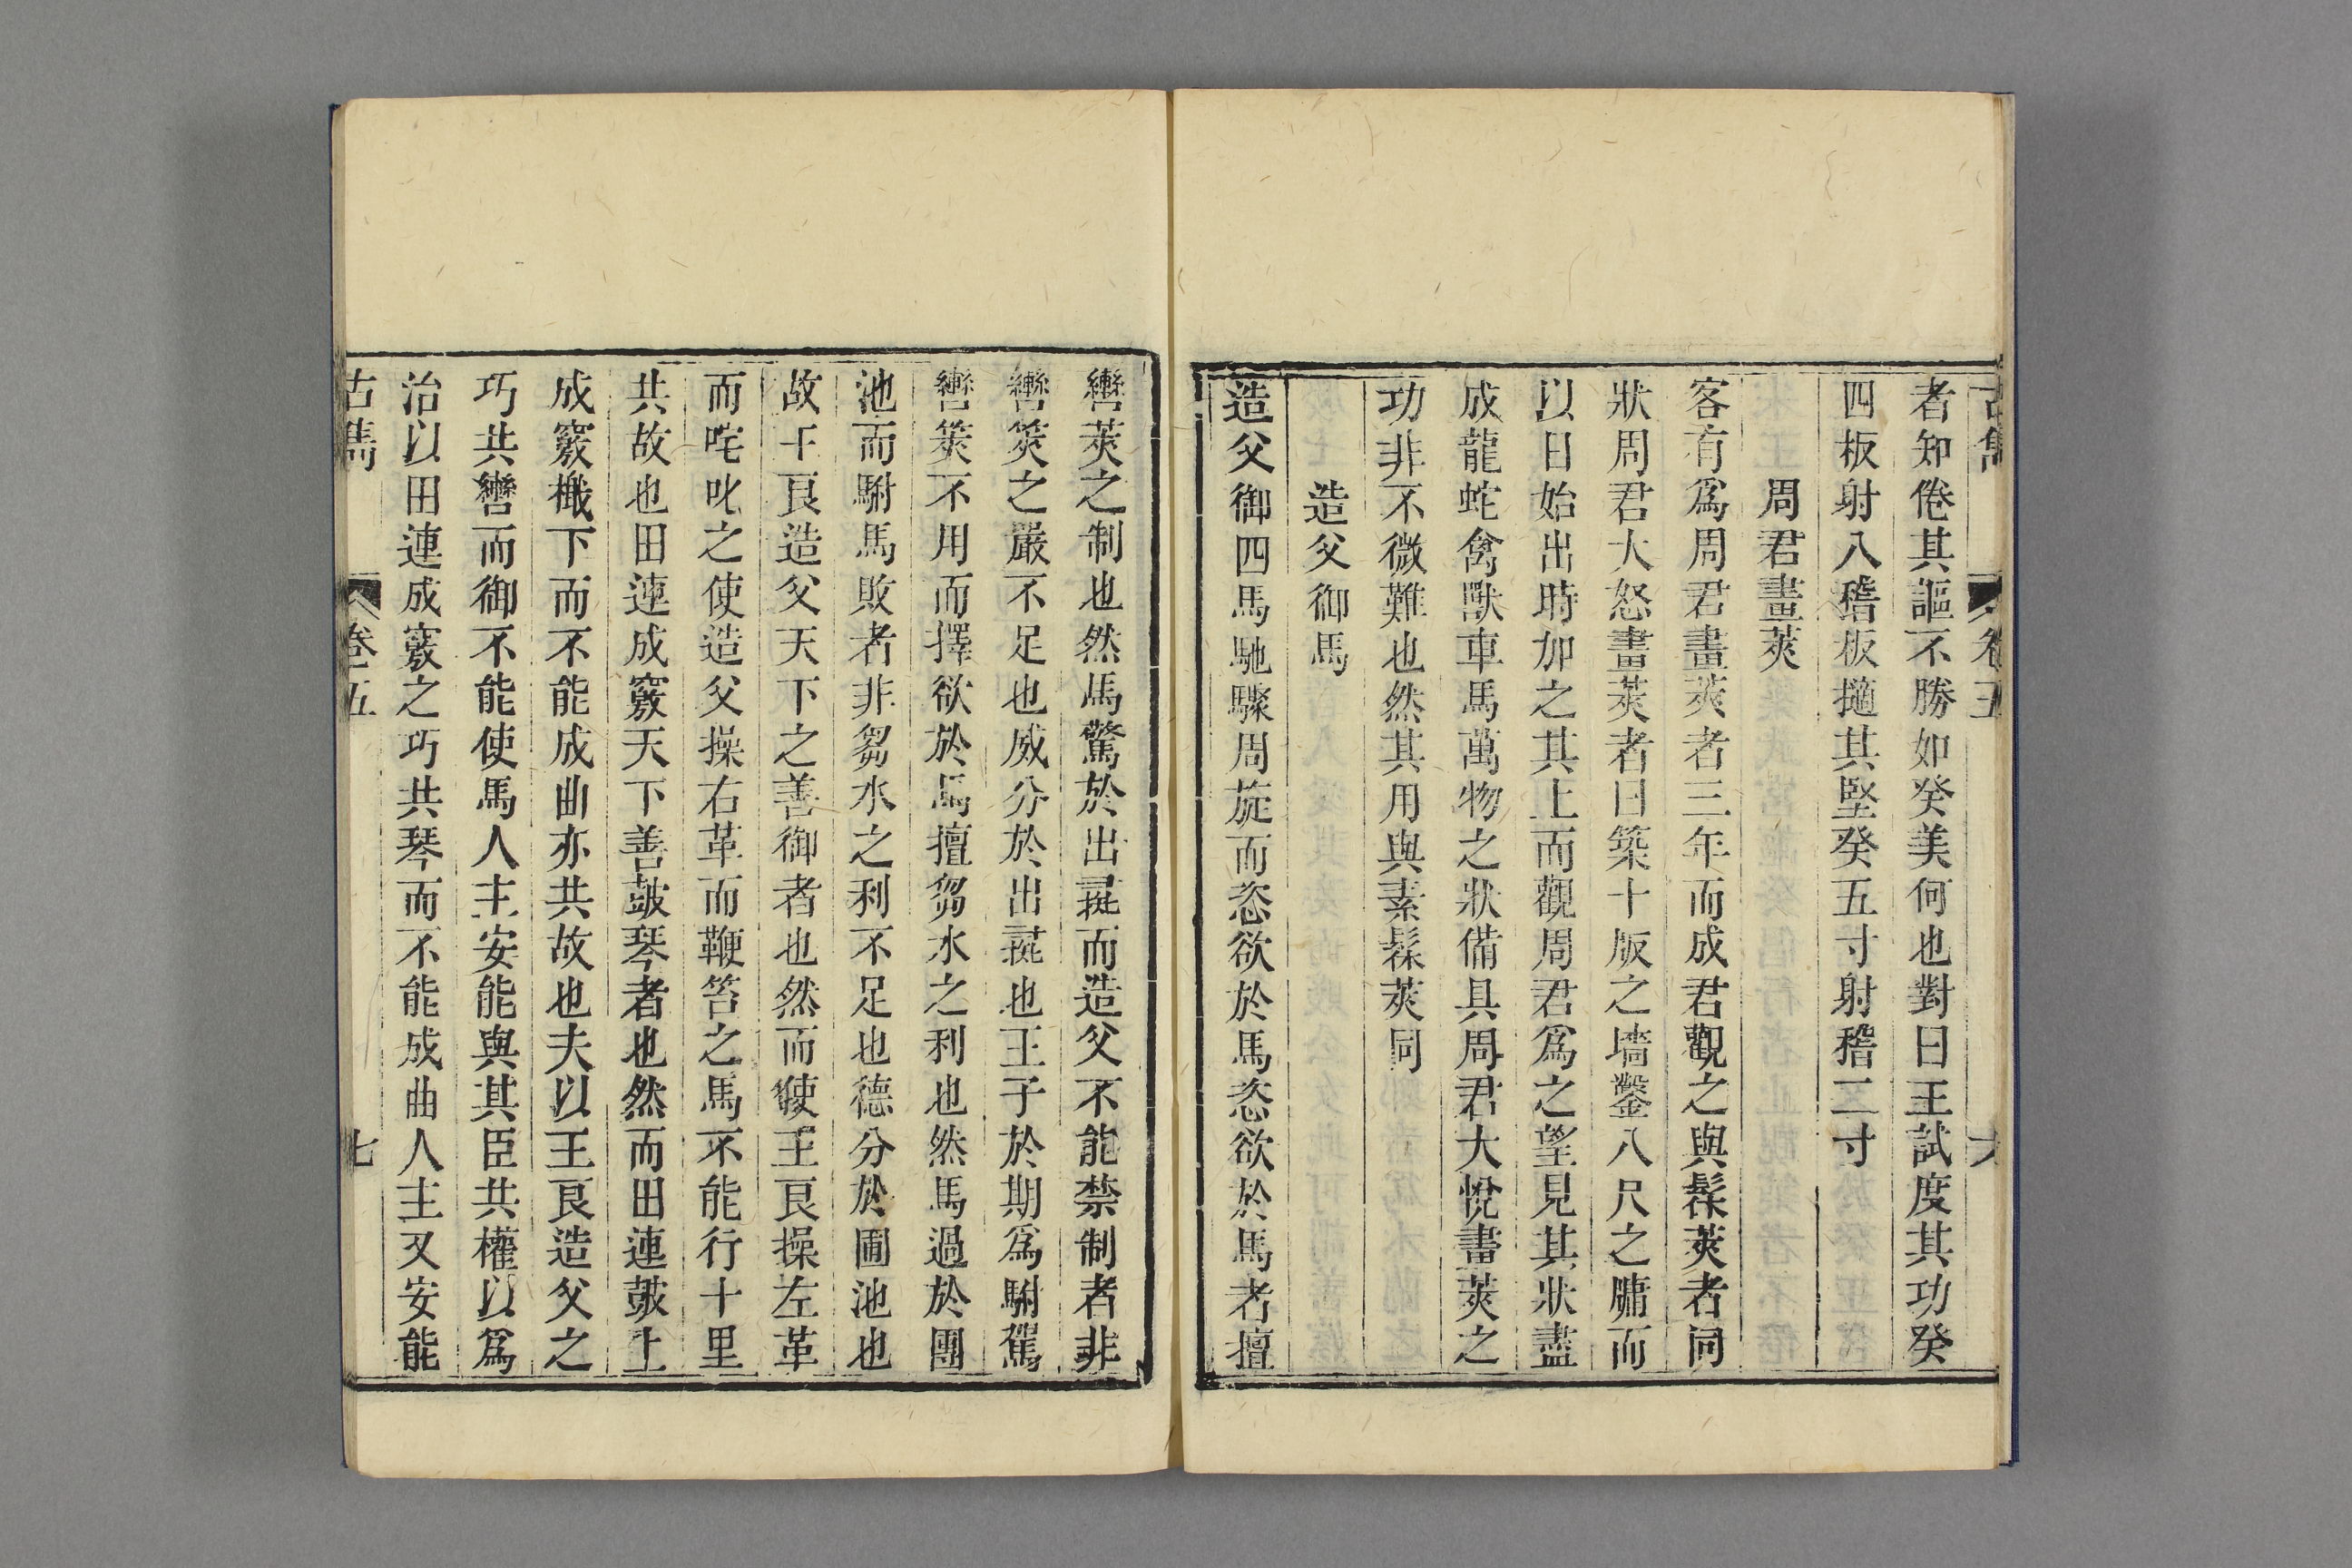 古雋 卷五 六
者知倦其謳不勝如癸美何也對曰王試度其功癸
四板射入稽板擿其堅癸五寸射稽二寸
周君畫莢
客有爲周君畫莢者三年而成君觀之與髹莢者同
狀周君大怒畫莢者曰築十版之墻鑿八尺之牗而
以日始出時加之其上而觀周君爲之望見其狀盡
成龍蛇禽獸車馬萬物之狀備具周君大悅畫莢之
功非不微難也然其用與素髹莢同
造父御馬
造父御四馬馳驟周旋而恣欲於馬恣欲於馬者擅
轡莢之制也然馬驚於出彘而造父不能禁制者非
轡筴之嚴不足也威分於出彘也王子於期爲駙駕
轡筴不用而擇欲於馬擅芻水之利也然馬過於圃
池而駙馬敗者非芻水之利不足也德分於圃池也
故王良造父天下之善御者也然而使王良操左革
而咤叱之使造父操右革而鞭笞之馬不能行十里
共故也田連成竅天下善鼓琴者也然而田連鼓上
成竅擑下而不能成曲亦共故也夫以王良造父之
巧共轡而御不能使馬人主安能與其臣共權以爲
治以田連成竅之巧共琴而不能成曲人主又安能
古雋 卷五 七